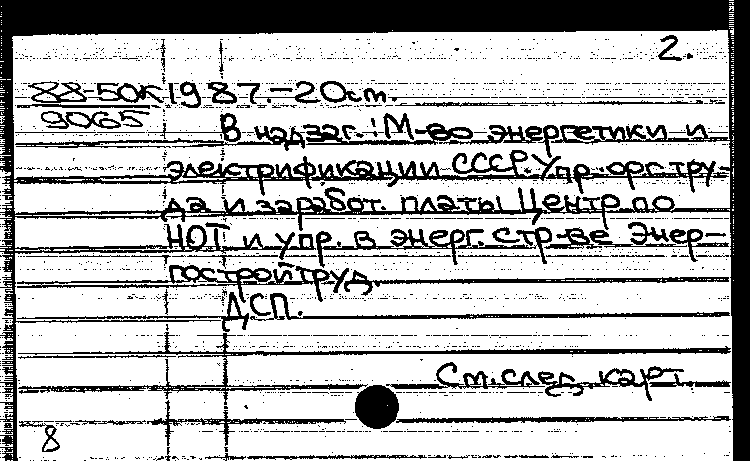 2.
88-50К 1987.-20 ст.
9065
В надзаг.: М-во энергетики и
электрификации СССР. Упр. орг. тру-
да и заработ. платы Центр по
НОТ и упр. в энерг. стр-ве Энер-
гостройтруд.
ДСП.
См. след. карт.
8